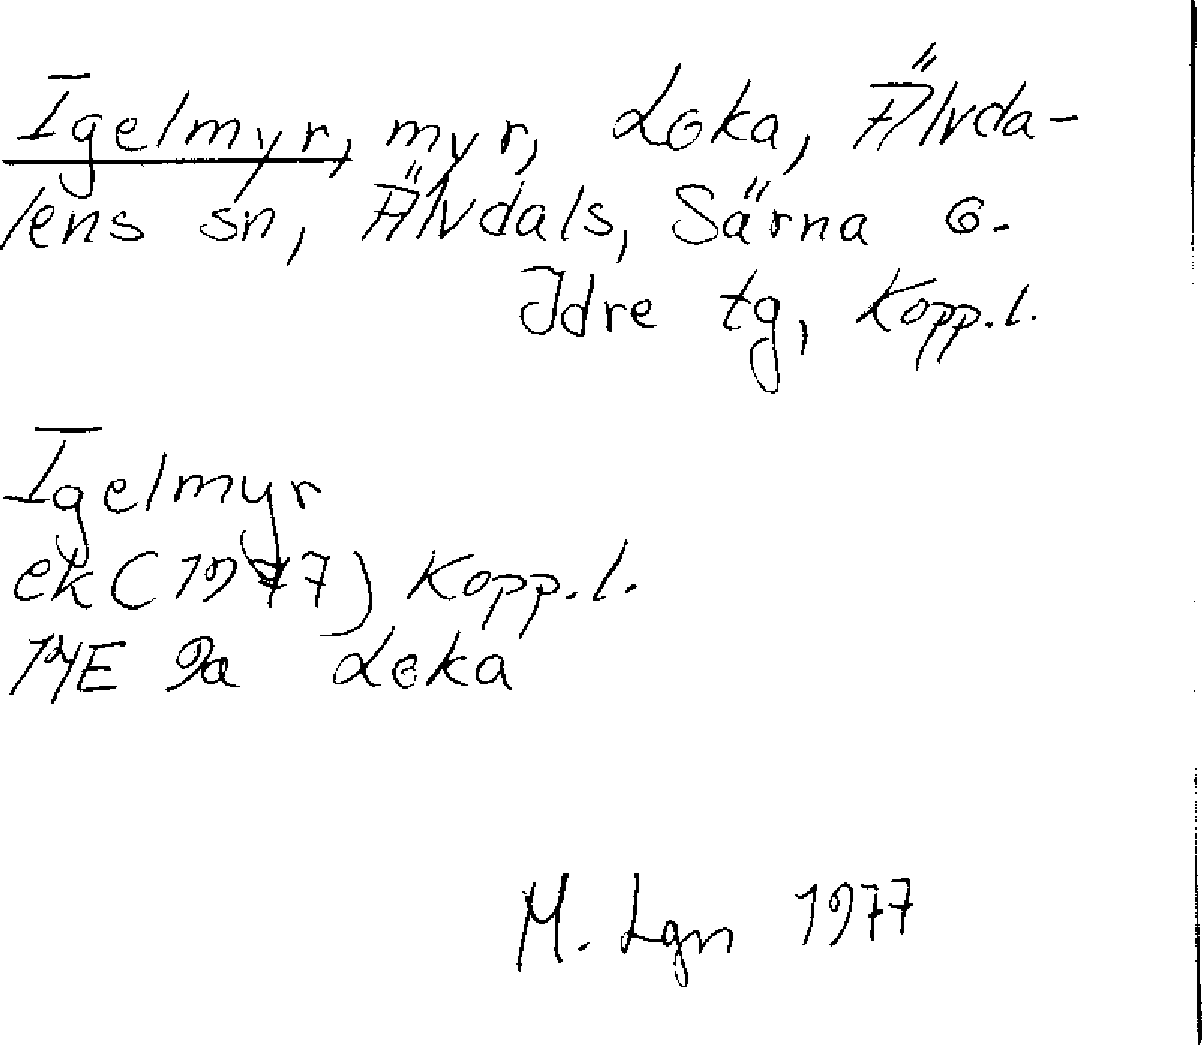 Igelmyr, myr, Loka, Älvda-
lens sn, Älvdals, Särna o.
Idre tg, Kopp.l.
Igelmyr
ek (1977) Kopp.l.
14E 9a Loka
M. Lgn 1977